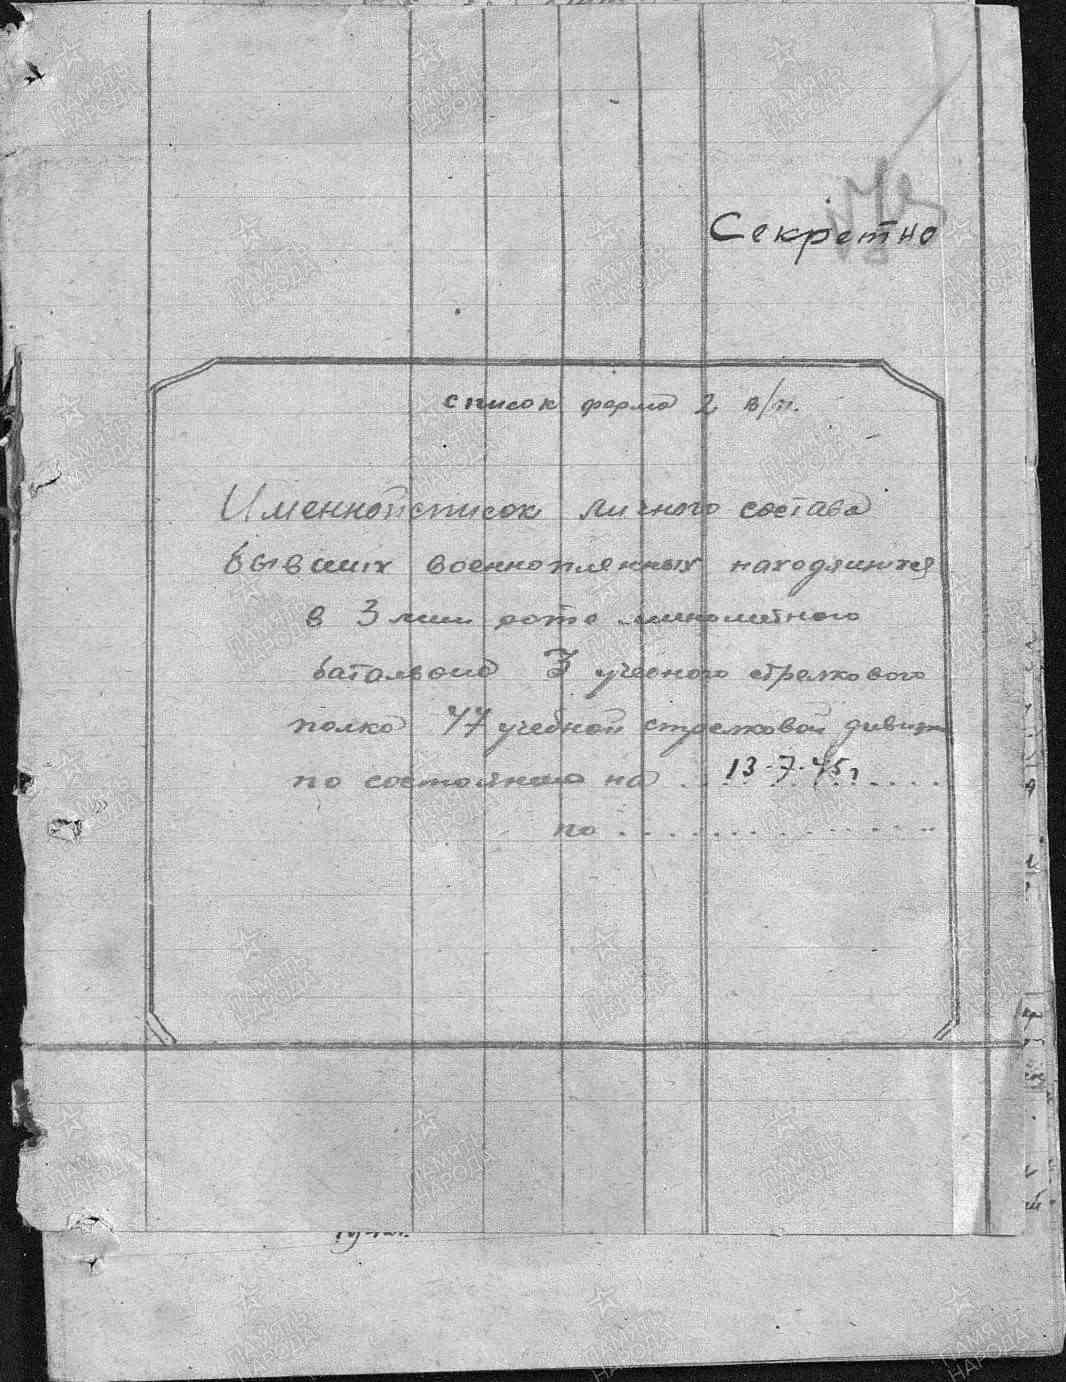 Секретно
список форма 2 в/п.
Именной список личного состава
бывших военнопленных находящихся
в 3 мин роте минометного
батальона 3 учебного стрелкового
полка 77 учебной стрелковой дивизии
по состоянию на . . 13-7-45г . . . .
по . . . . . . . . . . . . . .
ПАМЯТЬ НАРОДА